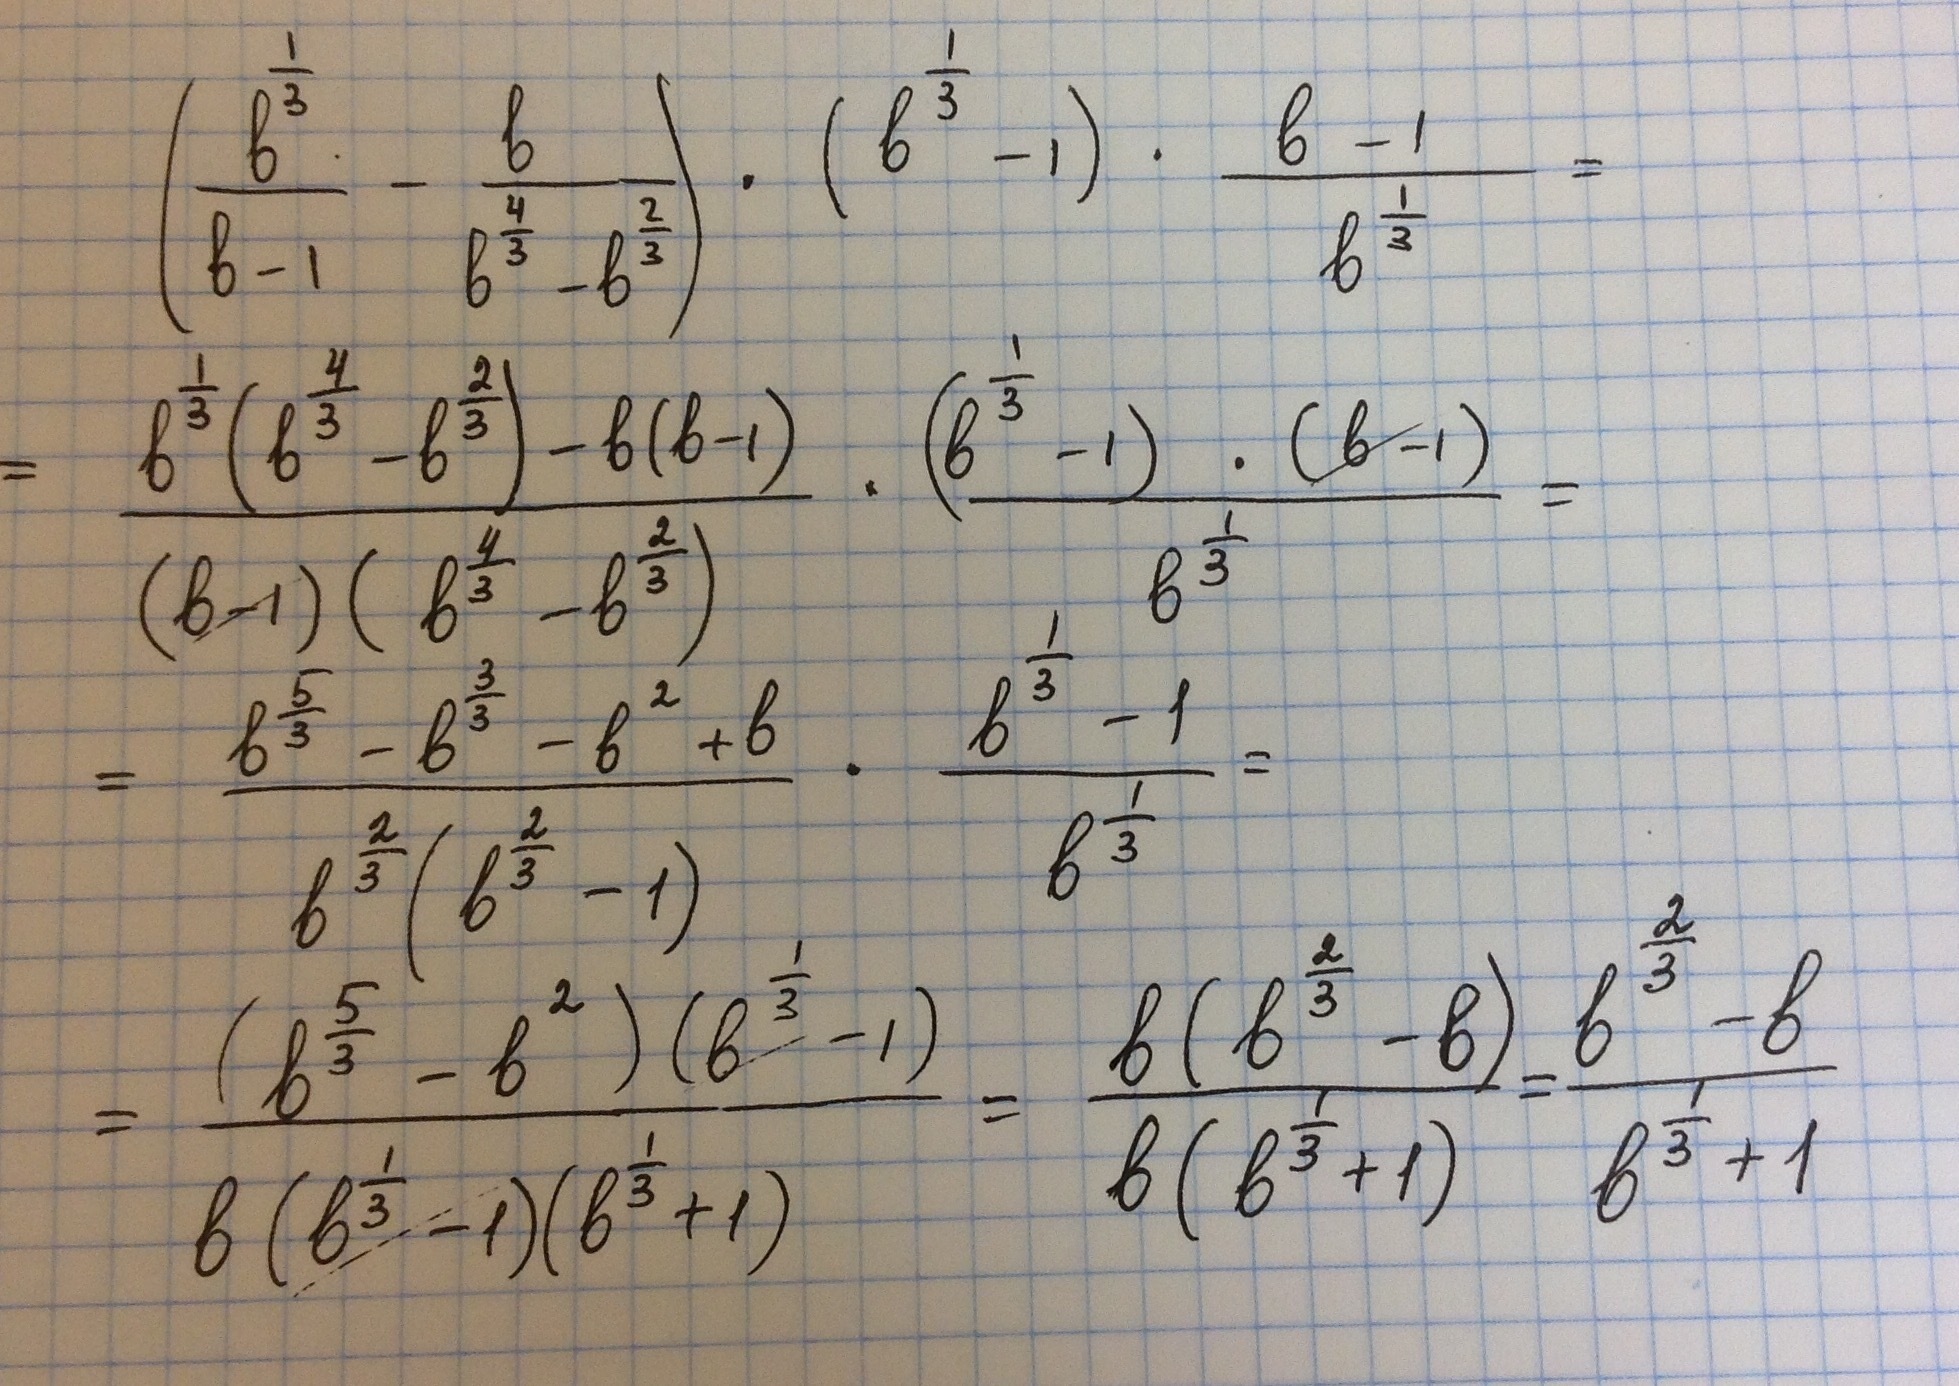 (b^(1/3)/(b-1) - b/(b^(4/3) - b^(2/3))) · (b^(1/3) - 1) · (b - 1)/b^(1/3) =
= (b^(1/3)(b^(4/3) - b^(2/3)) - b(b-1))/((b-1)(b^(4/3) - b^(2/3))) · ((b^(1/3) - 1) · (b-1))/b^(1/3) =
= (b^(5/3) - b^(3/3) - b^2 + b)/(b^(2/3)(b^(2/3) - 1)) · (b^(1/3) - 1)/b^(1/3) =
= ((b^(5/3) - b^2)(b^(1/3) - 1))/(b(b^(1/3) - 1)(b^(1/3) + 1)) = (b(b^(2/3) - b))/(b(b^(1/3) + 1)) = (b^(2/3) - b)/(b^(1/3) + 1)